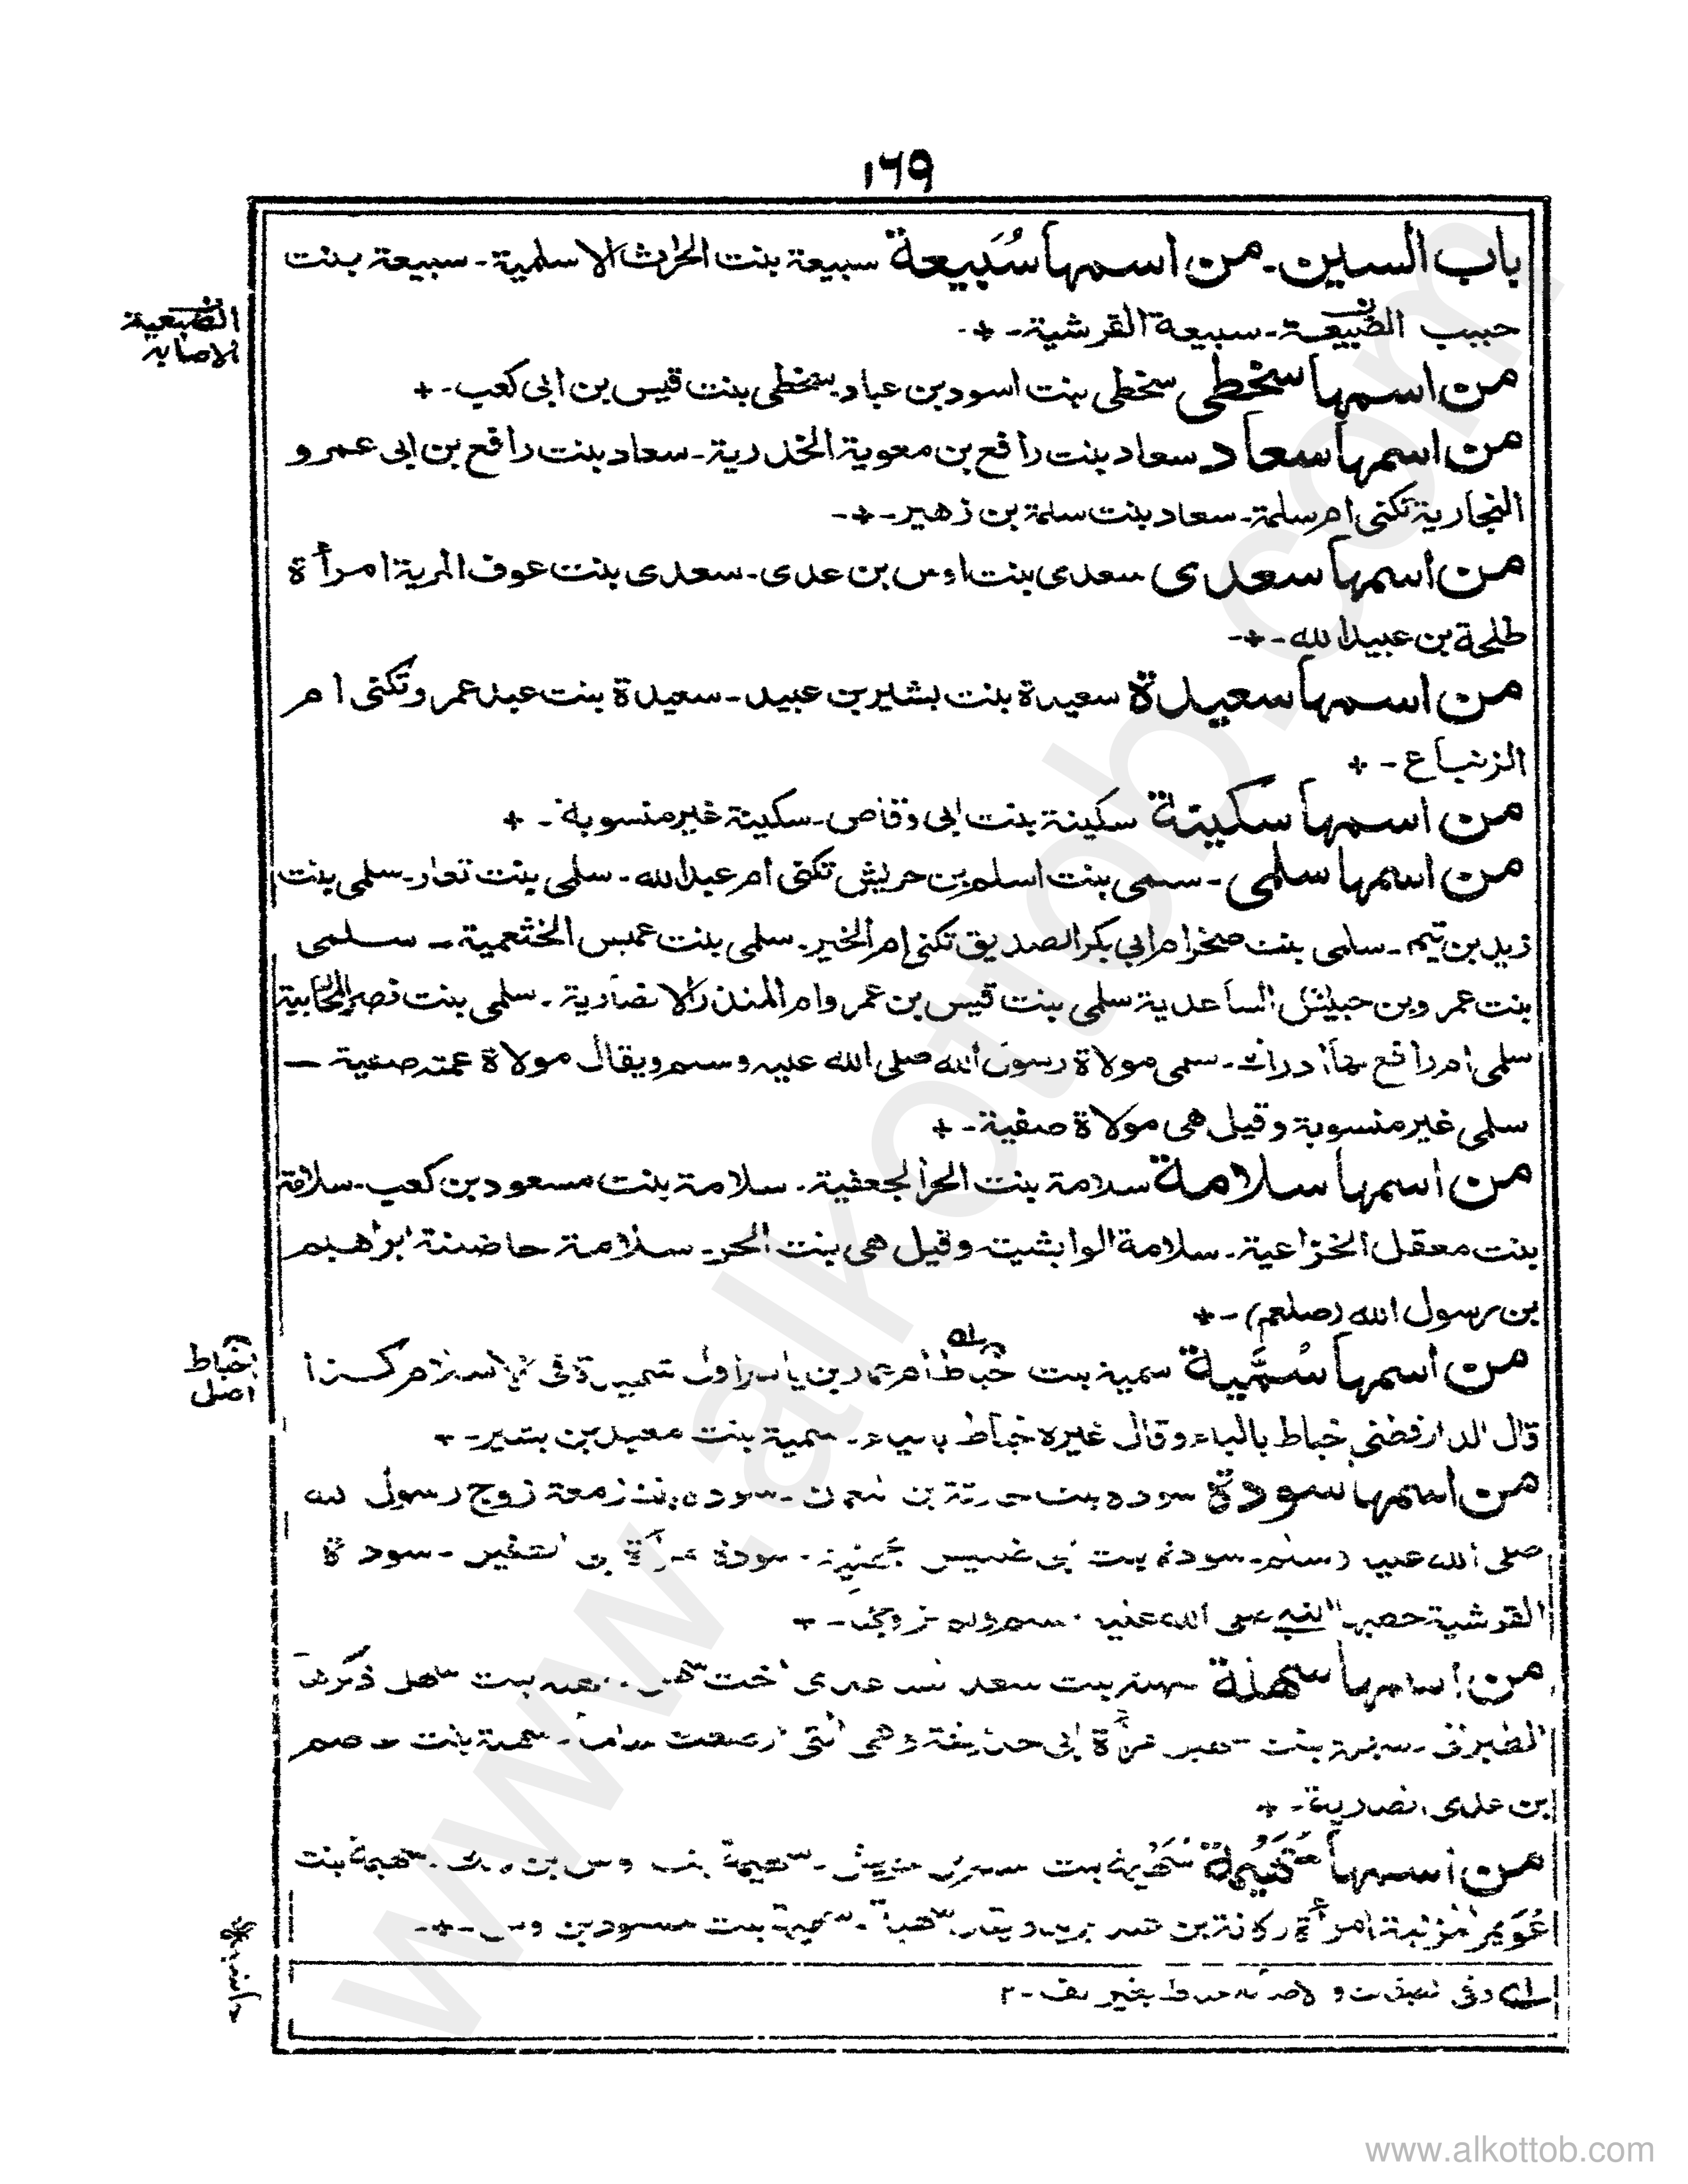 ١٦٩
باب السين - من اسمها سُبَيعة سبيعة بنت الحٰرث الاسلمية - سبيعة بنت
حبيب الضبيعة - سبيعة القرشية - +
الضبعية
الاصابه
من اسمها سخطى سخطى بنت اسود بن عباد - سخطى بنت قيس بن ابى كعب - +
من اسمها سعاد سعاد بنت رافع بن معوية الخدرية - سعاد بنت رافع بن ابى عمرو
النجارية تكنى ام سلمة - سعاد بنت سلمة بن زهير - + -
من اسمها سعدى سعدى بنت اوس بن عدى - سعدى بنت عوف المرية امرأة
طلحة بن عبيد الله - + -
من اسمها سعيدة سعيدة بنت بشير بن عبيد - سعيدة بنت عبد عمر وتكنى ام
الزنباع - +
من اسمها سكينة سكينة بنت ابى وقاص - سكينة غير منسوبة - +
من اسمها سلمى - سمى بنت اسلم بن حريش تكنى ام عبد الله - سلمى بنت تعار - سلمى بنت
زيد بن تيم - سلمى بنت صخر ام ابي بكر الصديق تكنى ام الخير - سلمى بنت عميس الخثعمية - سلمى
بنت عمر وبن حبيش الساعدية سلمى بنت قيس بن عمر وام المنذر الانصارية - سلمى بنت نصر المحاربية
سلمى ام رافع لها ادراك - سمى مولاة رسول الله صلى الله عليه وسلم ويقال مولاة عمته صفية -
سلمى غير منسوبة وقيل هى مولاة صفية - +
من اسمها سلامة سلامة بنت الحر الجعفية - سلامة بنت مسعود بن كعب - سلامة
بنت معقل الخزاعية - سلامة الوابشية وقيل هى بنت الحر - سلامة حاضنة ابراهيم
بن رسول الله (صلعم) - +
من اسمها سُمَيَّة سمية بنت خباط ام عمار بن ياسر اول شهيدة فى الاسلام كذا
خباط
اصل
قال الدارقطنى خباط بالباء وقال غيره خياط بالياء - سمية بنت معبد بن بشير - +
من اسمها سودة سوده بنت حارثة بن نعمان - سوده بنت زمعة زوج رسول الله
صلى الله عليه وسلم - سودة بنت ابى ضبيس جهنية - سودة امرأة ابى الطفيل - سودة
القرشية خطبها النبي صلى الله عليه وسلم ولم يزوجها - +
من اسمها سهلة سهلة بنت سعد الساعدى اخت سهل - سهلة بنت سهل ذكرها
الطبرانى - سهلة بنت سهيل امرأة ابى حذيفة وهى التى ارضعت سالما - سهلة بنت عاصم
بن عدى انصارية - +
من اسمها سُهَيمة سُهَيمة بنت اسلم بن حريش - سهيمة بنت اوس بن - سهيمة بنت
عُوَيمر المزنية امرأة ركانة بن عبد يزيد - سهيمة بنت مسعود بن اوس - + -
وفى و الاصابه خباط بغير الف - ٢
www.alkottob.com